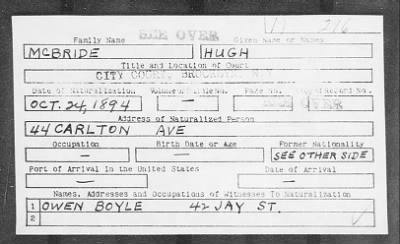 V 216
SEE OVER
Family Name Given Name or Names
McBRIDE HUGH
Title and Location of Court
CITY COURT, BROOKLYN, N.Y.
Date of Naturalization Volume or Bundle No. Page No. Copy of Record No.
OCT. 24, 1894 — SEE OVER
Address of Naturalized Person
44 CARLTON AVE
Occupation Birth Date or Age Former Nationality
— — SEE OTHER SIDE
Port of Arrival in the United States Date of Arrival
— —
Names, Addresses and Occupations of Witnesses To Naturalization
1 OWEN BOYLE 42 JAY ST.
2